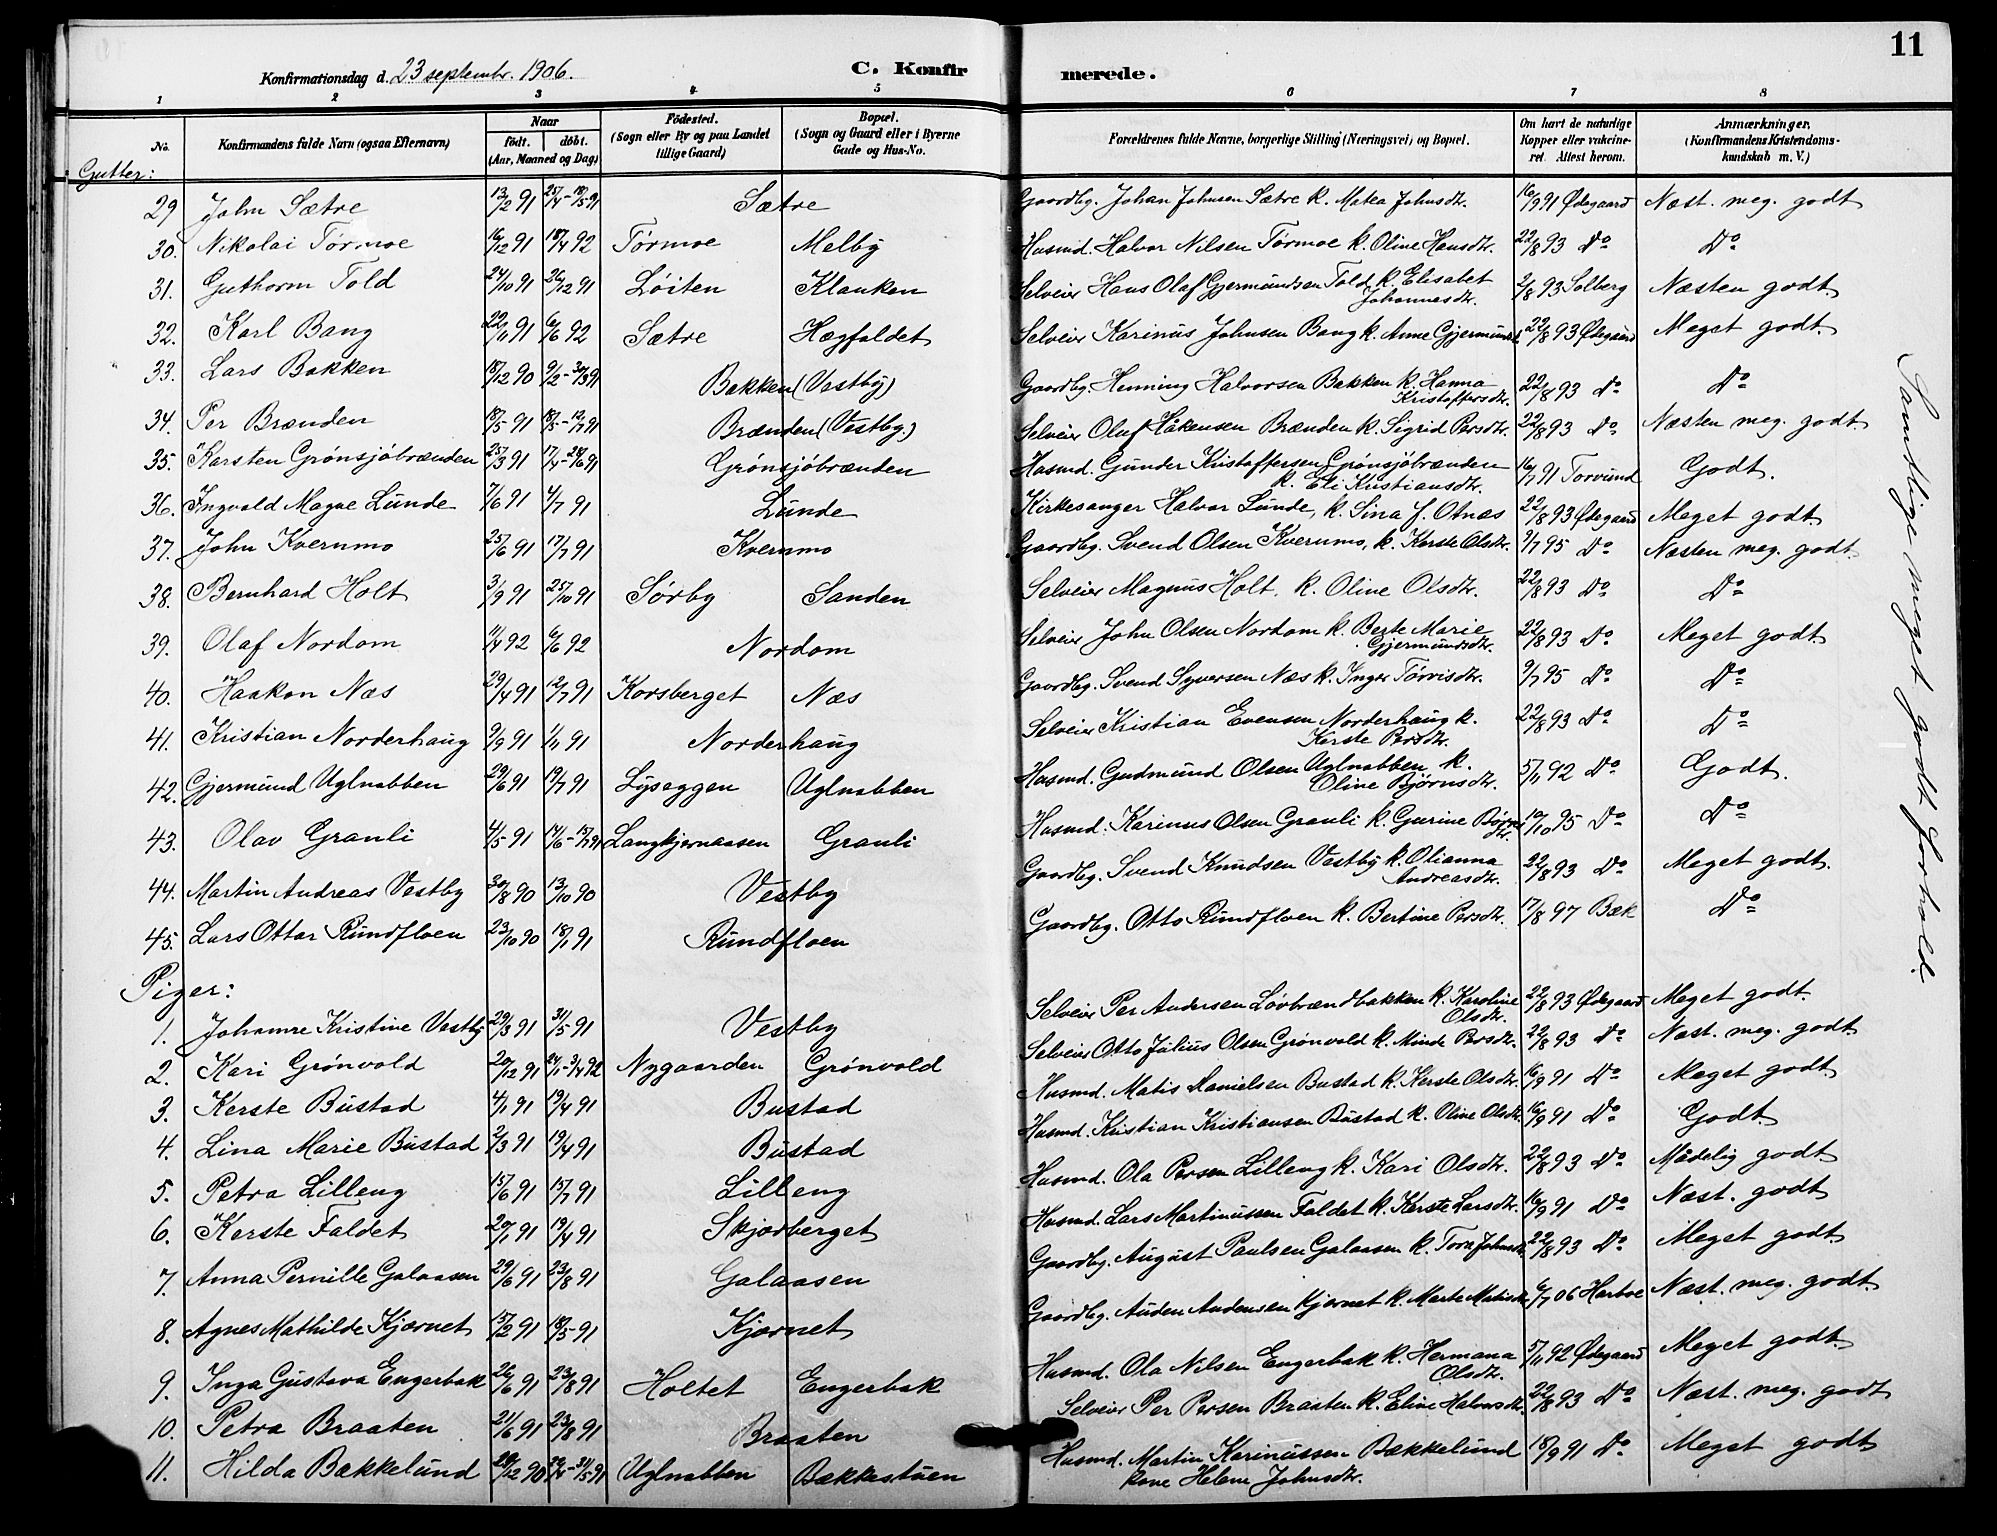 11
Konfirmationsdag d. 23 septembr. 1906.
C. Konfirmerede.
1 2 3 4 5 6 7 8
No. Konfirmandens fulde Navn (ogsaa Efternavn) Naar født. døbt. (Aar, Maaned og Dag) Fødested. (Sogn eller By og paa Landet tillige Gaard) Bopæl. (Sogn og Gaard eller i Byerne Gade og Hus-No. Forældrenes fulde Navne, borgerlige Stilling (Næringsvei) og Bopæl. Om havt de naturlige Kopper eller vakcineret. Attest herom. Anmærkninger. (Konfirmandens Kristendomskundskab m. V.)
Gutter:
29 John Sætre 13/2 91 25/4 - 18/5 91 Sætre Gaardbg. Johan Johnsen Sætre k. Matea Johnsdtr. 16/9 91 Ødegaard Næst. meg. godt
30. Nikolai Tørmoe 16/12 91 18/4 92 Tørmoe Melby Husmd. Halvor Nilsen Tørmoe k. Oline Hansdtr. 22/8 93 Do Do
31. Guthorm Told 24/10 91 26/12 91 Løiten Klanken Selveier Hans Olaf Gjermundsen Told k. Elisabet Johannesdtr. 2/8 93 Solberg Næsten godt.
32. Karl Bang 22/11 91 6/6 92 Sætre Hægfaldet Selveier Karinus Johnsen Bang k. Anne Gjermundsd. 22/8 93 Ødegaard Meget godt.
33. Lars Bakken 18/12 90 9/2 - 30/3 91 Bakken (Vestby) Gaardbg. Henning Halvorsen Bakken k. Hanna Kristoffersdtr. 22/8 93 Do Do
34. Per Brænden 18/5 91 18/5 - 12/7 91 Brænden (Vestby.) Selveier Oluf Håkensen Brænden k. Sigrid Persdtr. 22/8 93 Do Næsten meg. godt.
35. Karsten Grønsjöbrænden 25/3 91 17/4 - 24/6 91 Grønsjöbrænden Husmd. Gunder Kristoffersen Grønsjöbrænden k. Eli Kristiansdtr. 16/7 91 Torvund Godt.
36. Ingvald Magne Lunde 7/6 91 4/7 91 Lunde Kirkesanger Halvor Lunde, k. Sina f. Otnæs 22/8 93 Ødegaard Meget godt.
37. John Kvernmo 25/6 91 17/7 91 Kvernmo Gaardbg. Svend Olsen Kvernmo, k. Kerste Olsdtr. 7/7 95 Do Næsten meg. godt.
38. Bernhard Holt 3/9 91 25/10 91 Sørby Sanden Selveier Magnus Holt. k. Oline Olsdtr. 22/8 93 Do Do
39. Olaf Nordom 11/4 92 6/6 92 Nordom Selveier John Olsen Nordom k. Berte Marie Gjermundsdtr. 22/8 93 Do Meget godt.
40. Haakon Næs 29/4 91 12/7 91 Korsberget Næs Gaardbg. Svend Syversen Næs k. Inger Tørrisdtr. 9/7 95 Do Do
41. Kristian Norderhaug 9/9 91 1/11 91 Norderhaug Selveier Kristian Evensen Norderhaug k. Kerste Persdtr. 22/8 93 Do Do
42. Gjermund Uglnabben 29/6 91 19/7 91 Lyseggen Uglnabben Husmd. Gudmund Olsen Uglnabben k. Oline Bjørnsdtr. 5/11 92 Do Godt.
43. Olav Granli 4/5 91 14/6 - 15/7 91 Langkjernaasen Granli Husmd. Karinus Olsen Granli k. Gurine Børresdtr. 10/10 95 Do Do
44. Martin Andreas Vestby 30/8 90 13/10 90 Vestby Gaardbg. Svend Knudsen Vestby k. Olianna Andreasdtr. 22/8 93 Do Meget godt.
45. Lars Ottar Rundfloen 23/10 90 18/1 91 Rundfloen Gaardbg. Otto Rundfloen k. Bertine Persdtr. 17/8 97 Bæk Do
Piger:
1. Johanne Kristine Vestby 29/3 91 31/5 91 Vestby Selveier Per Andersen Lövbrændbakken k. Karoline Olsdtr. 22/8 93 Ødegaard Meget godt.
2. Kari Grönvold 20/12 91 24/1 - 3/4 92 Nygaarden Grönvold Selveier Otto Julius Olsen Grønvold k. Minde Persdtr. 22/8 93 Do Næst. meg. godt
3. Kerste Bustad 4/1 91 19/4 91 Bustad Husmd. Matis Danielsen Bustad k. Kerste Olsdtr. 16/9 91 Do Meget godt.
4. Lina Marie Bustad 2/3 91 19/4 91 Bustad Husmd. Kristian Kristiansen Bustad k. Oline Olsdtr. 16/9 91 Do Godt.
5. Petra Lilleng 15/6 91 15/7 91 Lilleng Husmd. Ola Persen Lilleng k. Kari Olsdtr. 22/8 93 Do Mådelig godt.
6. Kerste Faldet 20/1 91 19/4 91 Skjærberget Husmd. Lars Martinussen Faldet k. Kerste Larsdtr. 16/9 91 Do Næst. godt.
7. Anna Pernille Galaasen 29/6 91 23/8 91 Galaasen Gaardbg. August Paulsen Galaasen k. Tora Johnsdtr. 22/8 93 Do Meget godt.
8. Agnes Mathilde Kjærnet 15/2 91 18/5 91 Kjærnet Gaardbg. Auden Audensen Kjernet k. Marte Matisdtr. 6/7 06 Hartvo Næst. meg. godt.
9. Inga Gustava Engerbak 26/6 91 23/8 91 Holtet Engerbak Husmd. Ola Nilsen Engerbak k. Hermana Olsdtr. 5/11 92 Ødegaard Meget godt.
10. Petra Braaten 21/6 91 23/8 91 Braaten Selveier Per Persen Braaten k. Eline Halvorsdtr. 22/8 93 Do Næst. meg. godt
11. Hilda Bækkelund 28/12 90 26/4 - 31/5 91 Uglnabben Bækkestuen Husmd. Martin Karinussen Bækkelund kone Helene Johnsdtr. 18/9 91 Do Meget godt
Samtlige meget godt forhold.